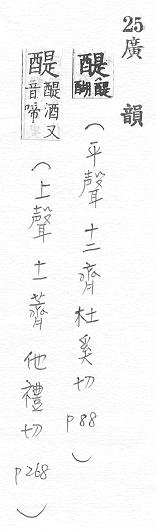 25廣韻
醍醍醐（平聲 十二齊杜奚切 p88）
醍醍酒又音啼（上聲 十一薺 他禮切 p268）